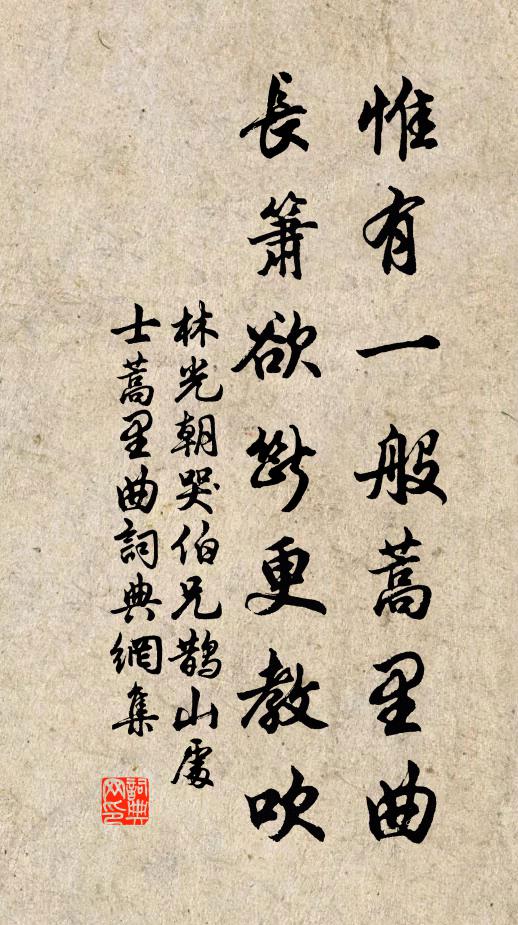 惟有一般蒿里曲
長簫欲斷更教吹
林光朝哭伯兄鵲山處
士蒿里曲詞典網集
詞典
网印